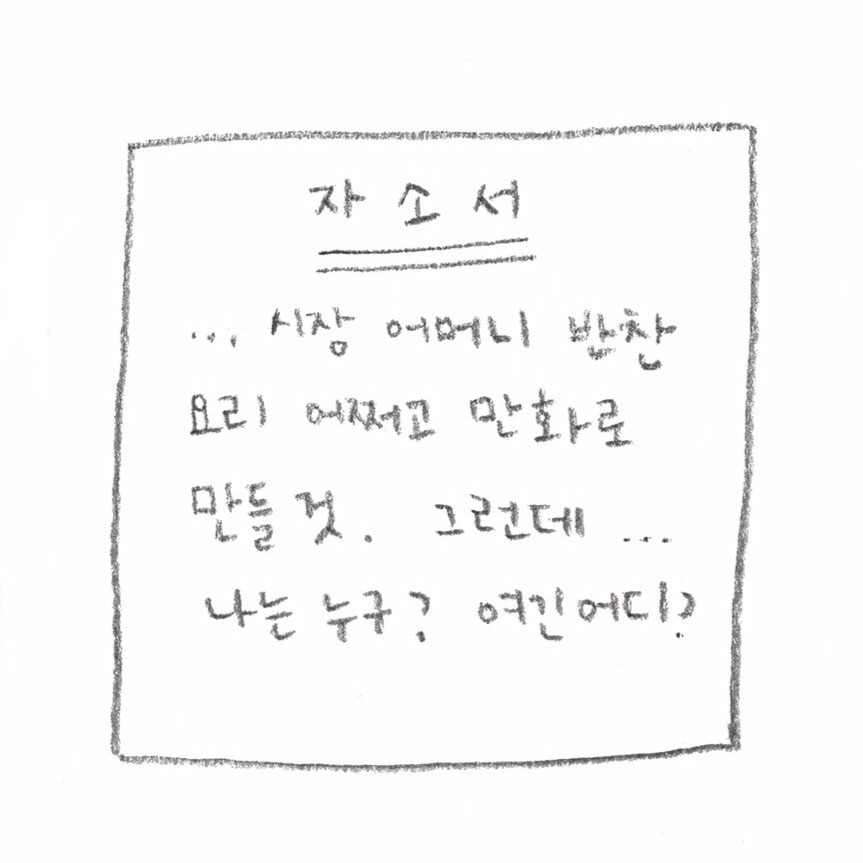 자 소 서
... 시장 어머니 반찬
요리 어쩌고 만화로
만들 것. 그런데 ...
나는 누구? 여긴 어디?